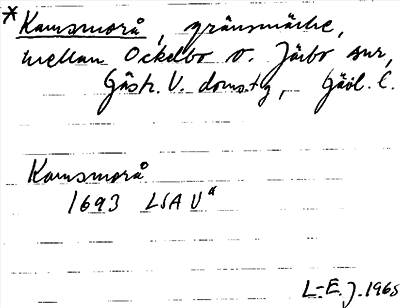 *Kamsmorå, gränsmärke,
mellan Ockelbo o. Järbo snr,
Gästr. V. doms.tg, Gävl. l.
Kamsmorå
1693 LSA U"
L-E. J. 1965